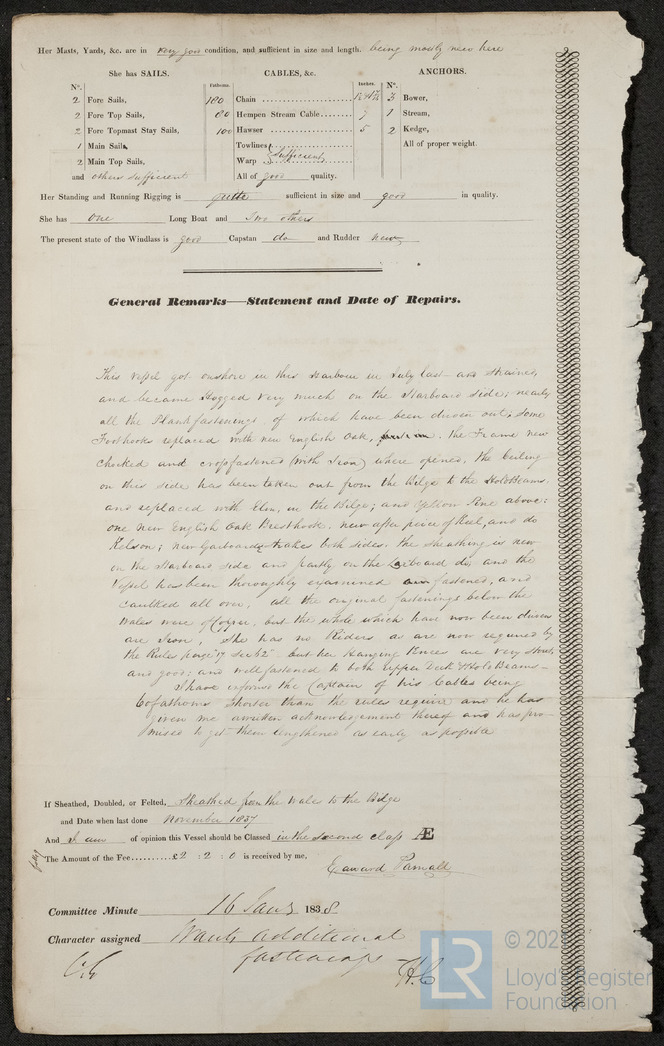 Her Masts, Yards, &c. are in very good condition, and sufficient in size and length. being mostly new here
She has SAILS. CABLES, &c. ANCHORS.
N°. Fathoms. Inches. N°.
2 Fore Sails, 180 Chain 3 Bower,
2 Fore Top Sails, 80 Hempen Stream Cable 7 1 Stream,
2 Fore Topmast Stay Sails, 100 Hawser 5 2 Kedge,
1 Main Sails, Towlines All of proper weight.
2 Main Top Sails, Warp Sufficient
and others sufficient All of good quality.
Her Standing and Running Rigging is sufficient in size and good in quality.
She has one Long Boat and Two others
The present state of the Windlass is good Capstan do and Rudder new
General Remarks—Statement and Date of Repairs.
This Vessel got onshore in this Harbour in July last and strained
and became Hogged very much on the Starboard side; nearly
all the Plank fastenings of which have been driven out; some
Foothooks replaced with new English Oak, the Frame new
chocked and crossfastened (with Iron) where opened, the Ceiling
on this side has been taken out from the Bilge to the Hold Beams
and replaced with Elm, in the Bilge; and Pine above:
one new English Oak Breasthook, new after peice of Keel, and do
Kelson; new Garboard strakes both sides. the sheathing is new
on the Starboard side and partly on the Larboard do, and the
Vessel has been thoroughly examined fastened, and
caulked all over, all the original fastenings below the
Wales were of Copper, but the whole which have now been driven
are Iron, She has no Riders as are now required by
the Rules page 17 Sec 62 but her Hanging Knees are very stout,
and good: and well fastened to both upper Deck & Hold Beams—
I have informed the Captain of his Cables being
60 fathoms shorter than the rules require and he has
given me a written acknowledgement thereof and has pro-
mised to get them lengthened as early as possible
If Sheathed, Doubled, or Felted, Sheathed from the Wale to the Bilge
and Date when last done November 1837
And I am of opinion this Vessel should be Classed in the second class Æ
The Amount of the Fee £2 : 2 : 0 is received by me,
Edward Parnall
Committee Minute 16 Jany 1838
Character assigned Wants additional
fastenings
© 202
Lloyd's Register
Foundation
LR